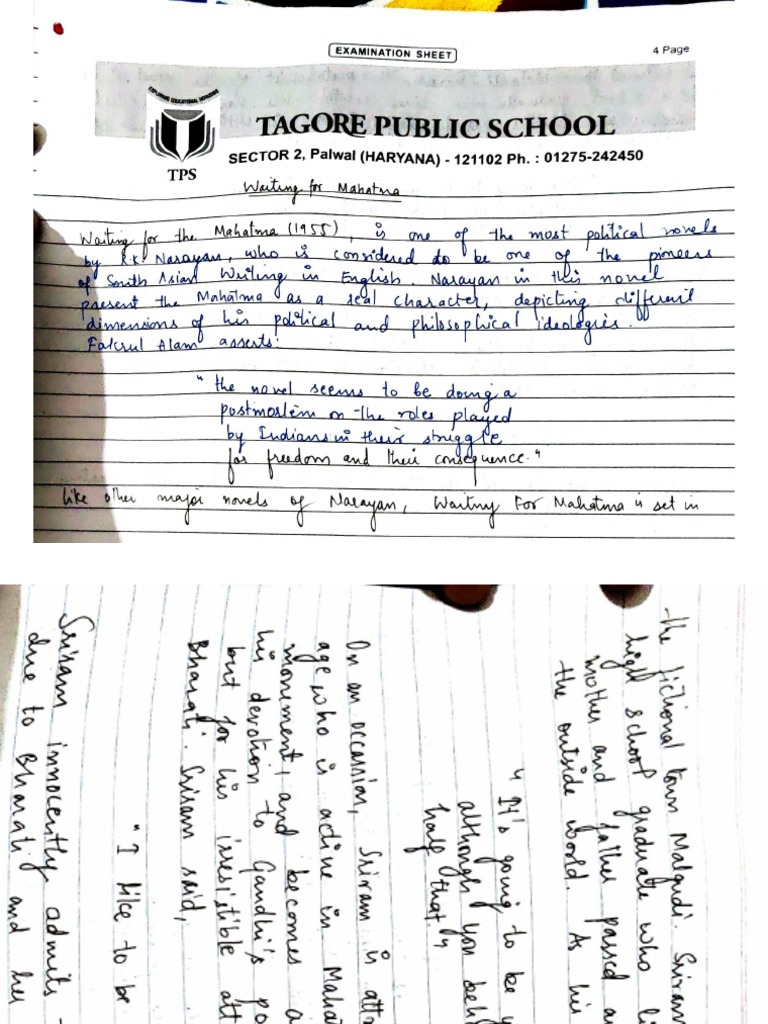 EXAMINATION SHEET
4 Page
EXPLORING EDUCATIONAL HORIZONS
TPS
TAGORE PUBLIC SCHOOL
SECTOR 2, Palwal (HARYANA) - 121102 Ph. : 01275-242450
Waiting for Mahatma
Waiting for the Mahatma (1955), is one of the most political novels
by R.K. Narayan, who is considered to be one of the pioneers
of South Asian Writing in English. Narayan in this novel
present the Mahatma as a real character, depicting different
dimensions of his political and philosophical ideologies.
Fakrul Alam asserts:
" the novel seems to be doing a
postmortem on the roles played
by Indians in their struggle
for freedom and their consequence."
like other major novels of Narayan, Waiting For Mahatma is set in
the fictional town Malgudi. Sriram
high school graduate who li
mother and father passed a
the outside world. As his
" It's going to be y
although you beh
half that "
On an occassion, Sriram is attr
age who is active in Maha
monument, and becomes a
his devotion to Gandhi's po
but for his irresistible att
Bharati. Sriram said,
" I like to be
Sriram innocently admits
due to Bharati and her